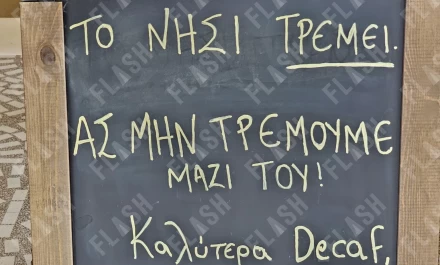 ΤΟ ΝΗΣΙ ΤΡΕΜΕΙ.
ΑΣ ΜΗΝ ΤΡΕΜΟΥΜΕ
ΜΑΖΙ ΤΟΥ!
Καλύτερα Decaf,